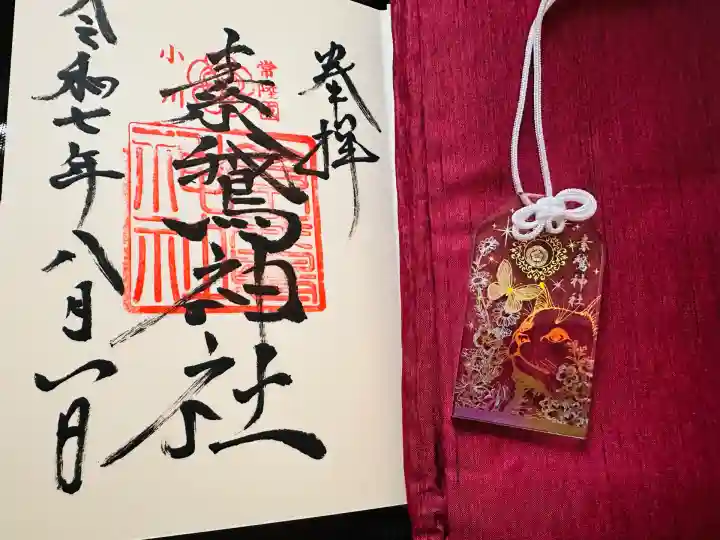 奉拝
常陸國
小川
素鵞神社
令和七年八月一日
素鵞神社